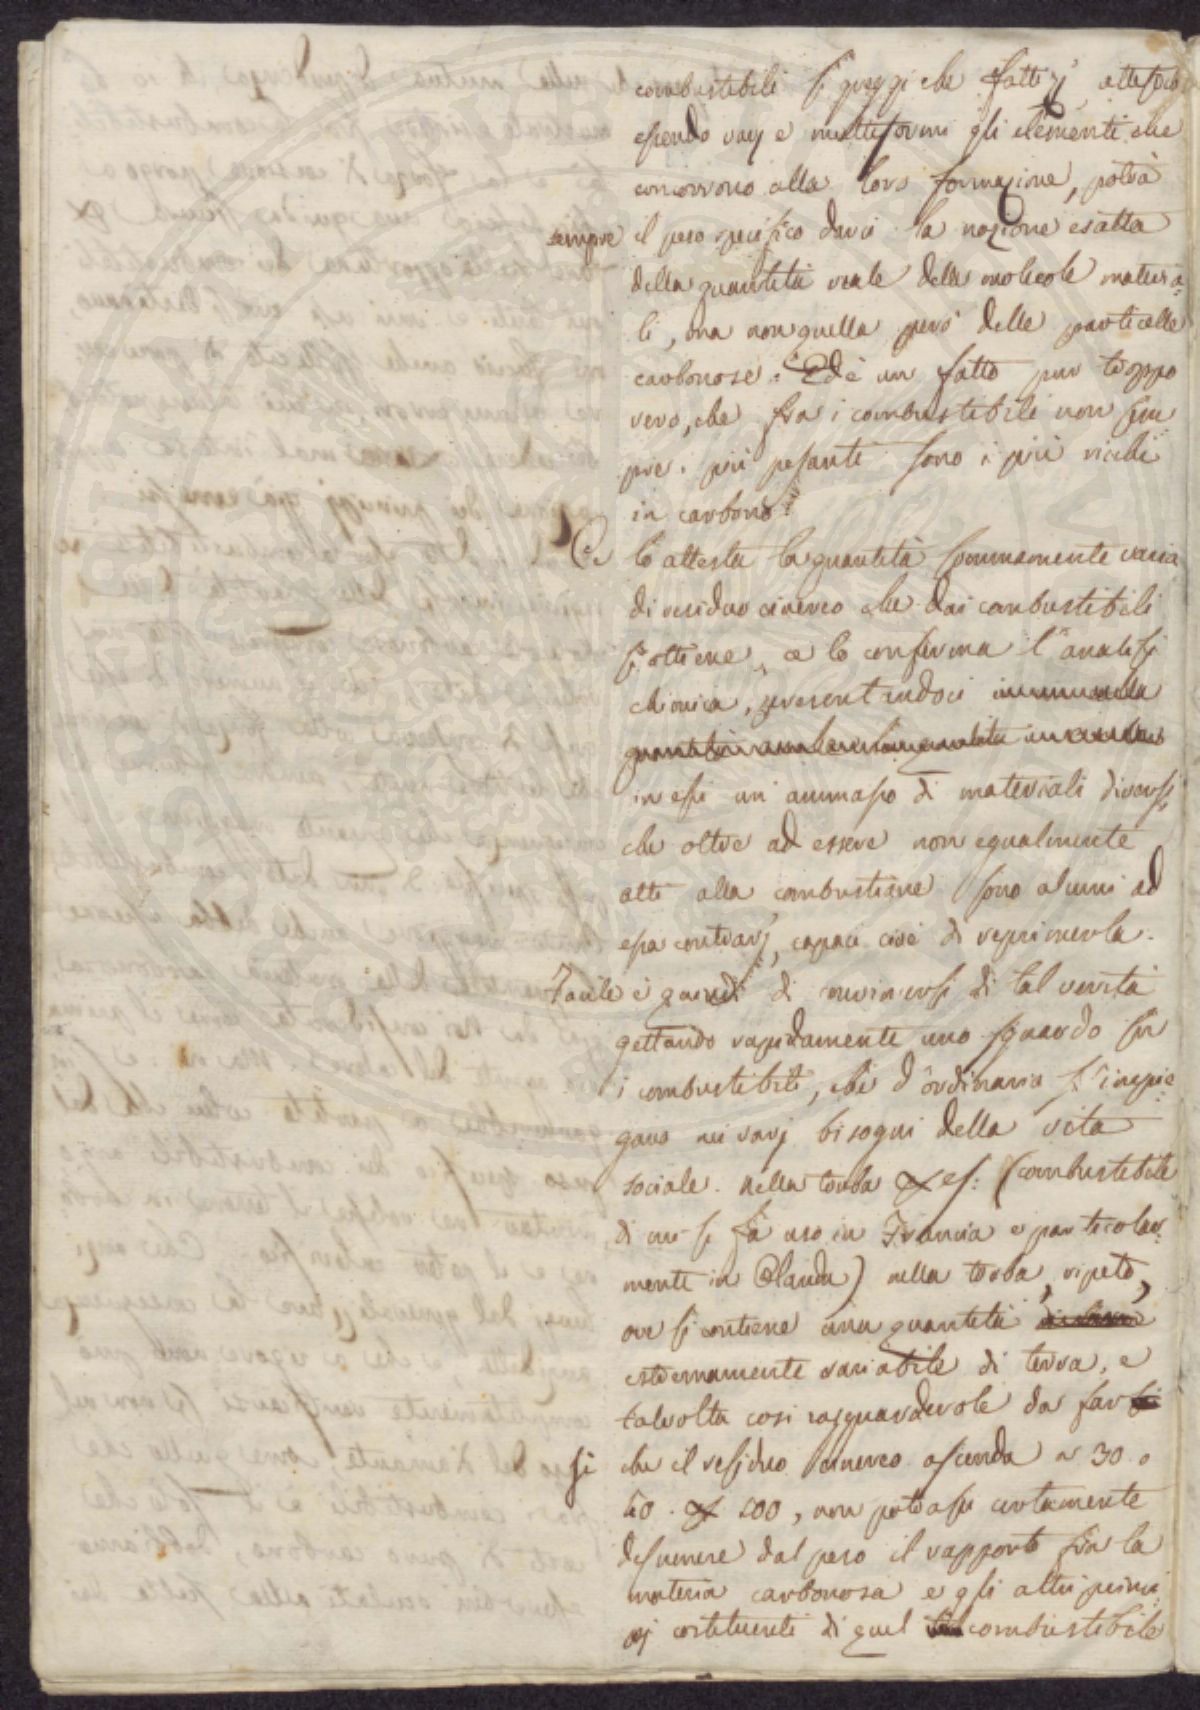 combustibili sì greggi che fattizj, attesoché
essendo varj e multiformi gli elementi che
concorrono alla loro formazione, potrà
sempre il peso specifico darci la nozione esatta
della quantità reale delle molecole materia=
li, ma non quella però delle particelle
carbonose. Ed è un fatto pur troppo
vero, che fra i combustibili non sem=
pre i più pesanti sono i più ricchi
in carbono.
Ce lo attesta la quantità sommamente varia
di residuo cinereo che dai combustibili
s'ottiene, e lo conferma l'analisi
chimica, presentandoci
in essi un ammasso di materiali diversi,
che oltre ad essere non egualmente
atti alla combustione sono alcuni ad
essa contrarj, capaci cioè di reprimerla.
Facile è quindi di convincersi di tal verità
gettando rapidamente uno sguardo su
i combustibili, che d'ordinario s'impie=
gano nei varj bisogni della vita
sociale. Nella torba p. es: (combustibile
di cui si fà uso in Francia e particolar=
mente in Olanda) nella torba, ripeto,
ove si contiene una quantità
estremamente variabile di terra, e
talvolta così ragguardevole da far
sì che il residuo cinereo ascenda a 30 o
40 p 100, non potrassi certamente
desumere dal peso il rapporto fra la
materia carbonosa e gli altri princi=
pj costituenti di quel combustibile